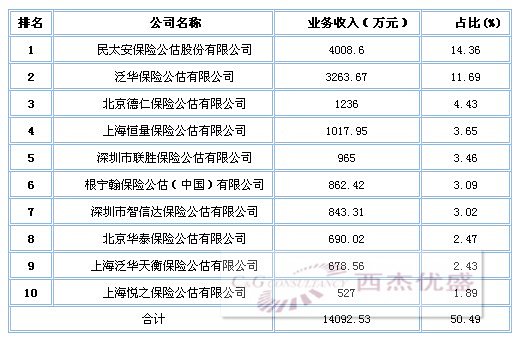 排名 公司名称 业务收入（万元） 占比(%)
1 民太安保险公估股份有限公司 4008.6 14.36
2 泛华保险公估有限公司 3263.67 11.69
3 北京德仁保险公估有限公司 1236 4.43
4 上海恒量保险公估有限公司 1017.95 3.65
5 深圳市联胜保险公估有限公司 965 3.46
6 根宁翰保险公估（中国）有限公司 862.42 3.09
7 深圳市智信达保险公估有限公司 843.31 3.02
8 北京华泰保险公估有限公司 690.02 2.47
9 上海泛华天衡保险公估有限公司 678.56 2.43
C&G CONSULTANCY 西杰优盛
10 上海悦之保险公估有限公司 527 1.89
合计 14092.53 50.49